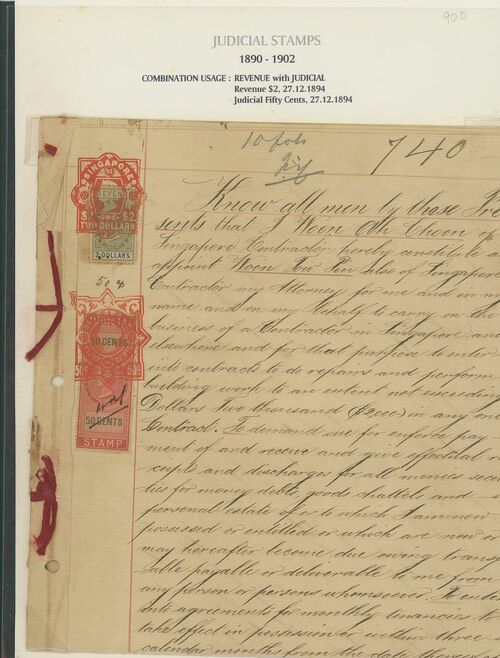 900
JUDICIAL STAMPS
1890 - 1902
COMBINATION USAGE : REVENUE with JUDICIAL
Revenue $2, 27.12.1894
Judicial Fifty Cents, 27.12.1894
10 fols
740
SINGAPORE
REVENUE
$2 $2
TWO DOLLARS
2 DOLLARS
50 c
50 CENTS
50c 50c
50 CENTS
STAMP
Know all men by these Pre
sents that I Woon Ah Choon of
Singapore Contractor hereby constitute a
appoint Woon Tow Pin also of Singapor
Contractor my Attorney for me and in m
name and on my behalf to carry on the
business of a Contractor in Singapore and
elsewhere and for that purpose to enter
into contracts to do repairs and perform
building work to an extent not exceeding
Dollars Two thousand ($2000) in any on
Contract. To demand sue for enforce pay
ment of and receive and give effectual re
ceipts and discharges for all monies secur
ties for money debts goods chattels and
personal estate of or to which I am now
possessed or entitled or which are now or
may hereafter become due owing trans
ble payable or deliverable to me from
any person or persons whomsoever. To enter
into agreements for monthly tenancies to
take effect in possession or within three
calendar months from the date thereof